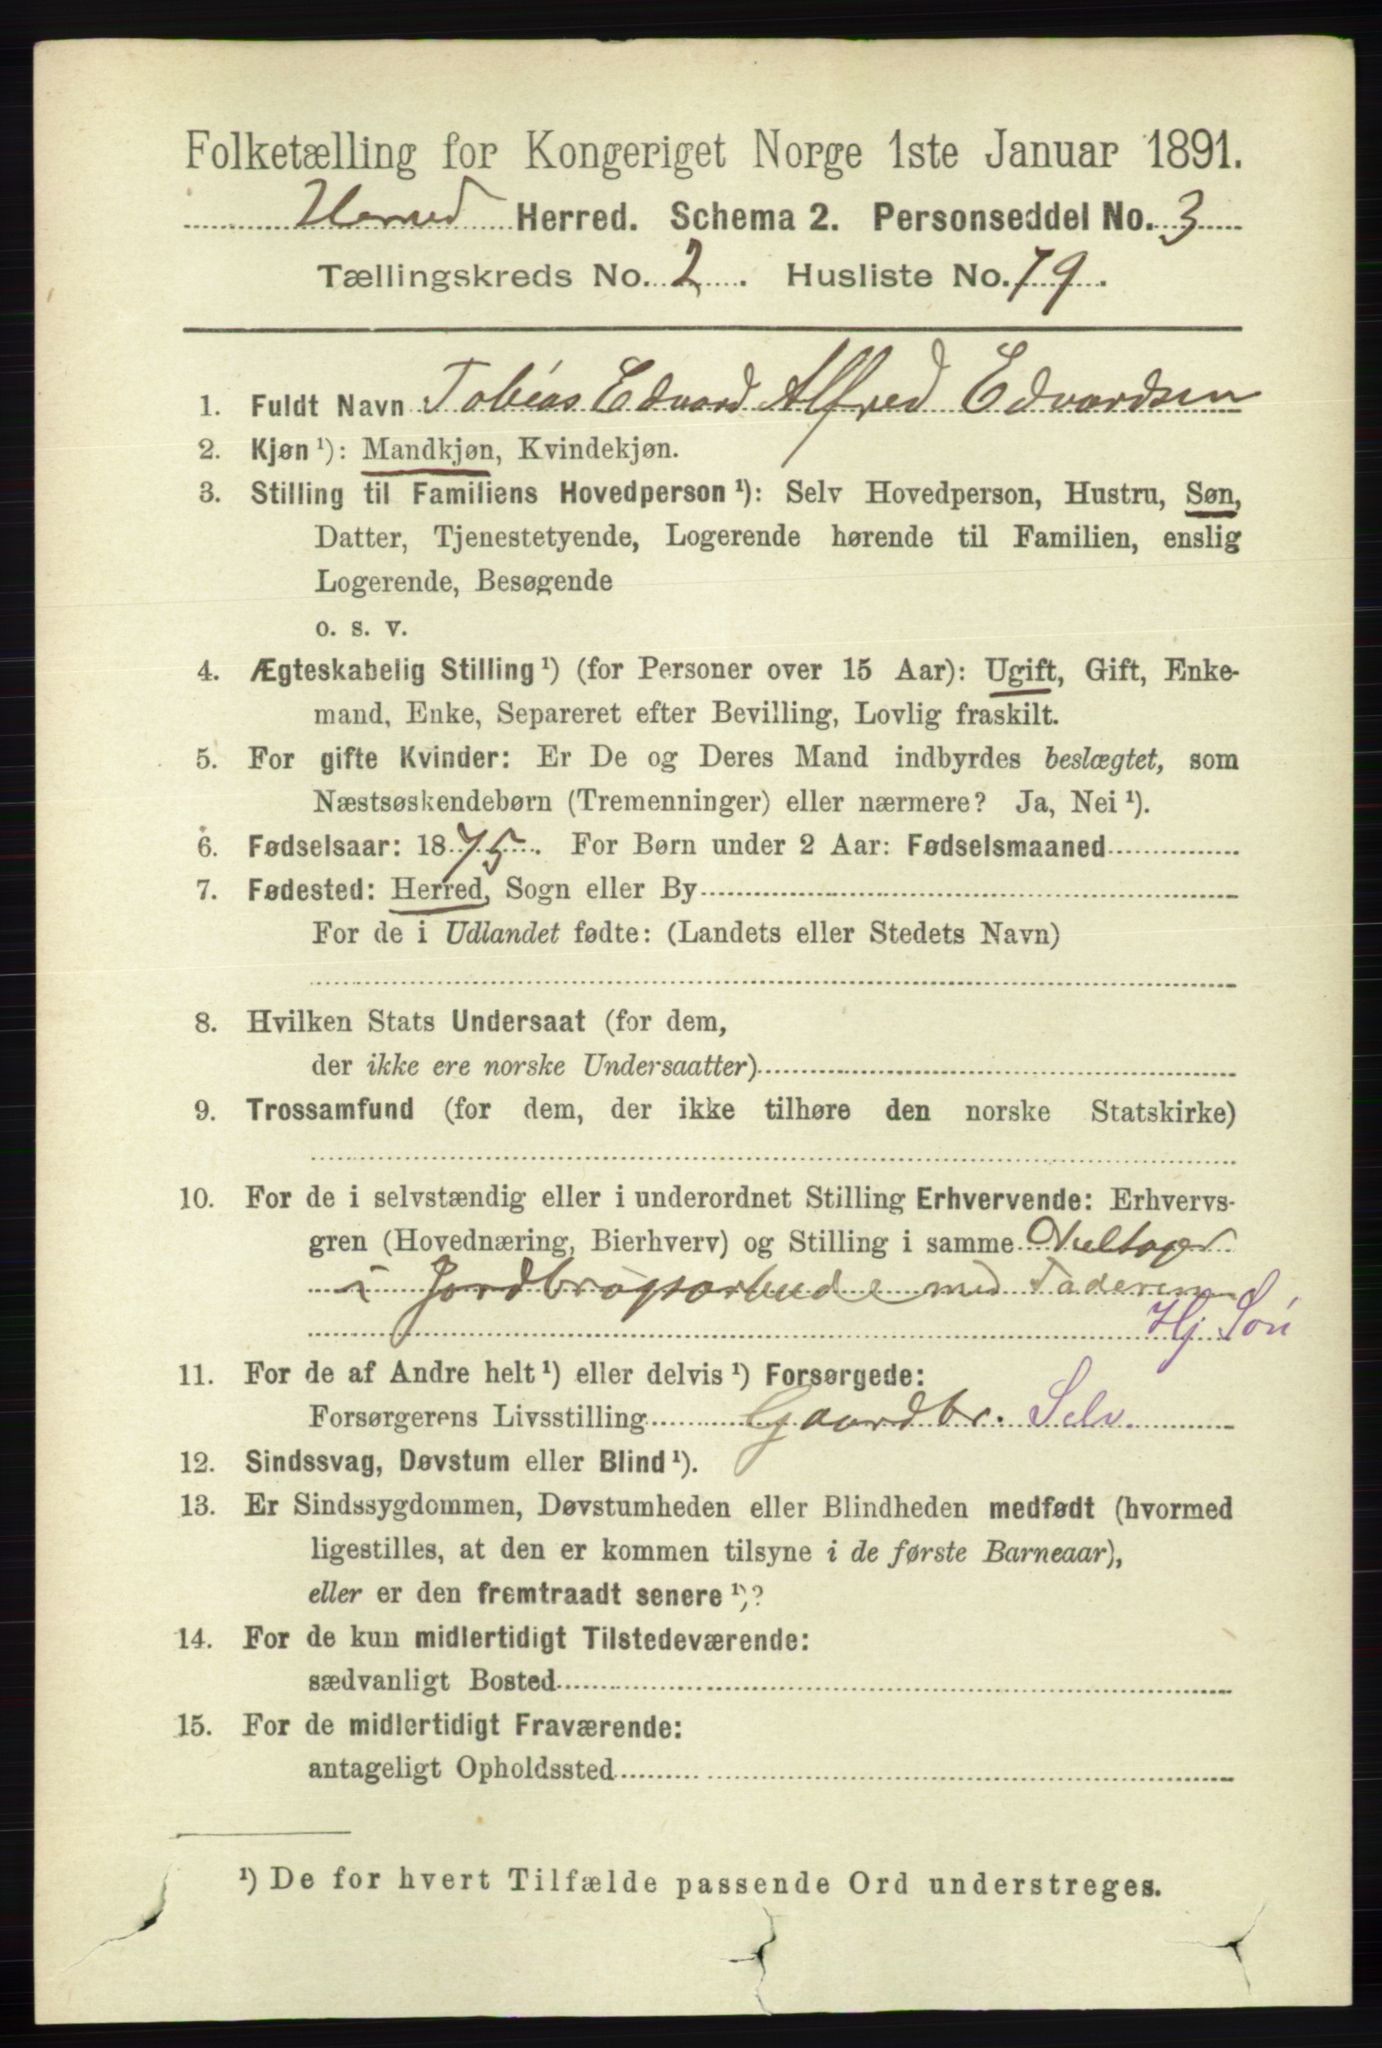 Folketælling for Kongeriget Norge 1ste Januar 1891.
Herred Herred. Schema 2. Personseddel No. 3
Tællingskreds No. 2. Husliste No. 79.
1. Fuldt Navn Tobias Edvard Alfred Edvardsen
2. Kjøn ¹): Mandkjøn, Kvindekjøn.
3. Stilling til Familiens Hovedperson ¹): Selv Hovedperson, Hustru, Søn,
Datter, Tjenestetyende, Logerende hørende til Familien, enslig
Logerende, Besøgende
o. s. v.
4. Ægteskabelig Stilling ¹) (for Personer over 15 Aar): Ugift, Gift, Enke-
mand, Enke, Separeret efter Bevilling, Lovlig fraskilt.
5. For gifte Kvinder: Er De og Deres Mand indbyrdes beslægtet, som
Næstsøskendebørn (Tremenninger) eller nærmere? Ja, Nei ¹).
6. Fødselsaar: 1875. For Børn under 2 Aar: Fødselsmaaned
7. Fødested: Herred, Sogn eller By
For de i Udlandet fødte: (Landets eller Stedets Navn)
8. Hvilken Stats Undersaat (for dem,
der ikke ere norske Undersaatter)
9. Trossamfund (for dem, der ikke tilhøre den norske Statskirke)
10. For de i selvstændig eller i underordnet Stilling Erhvervende: Erhvervs-
gren (Hovednæring, Bierhverv) og Stilling i samme Deeltager
i Jordbrugsarbeide med Faderen
Hj Søn
11. For de af Andre helt ¹) eller delvis ¹) Forsørgede:
Forsørgerens Livsstilling Gaardbr. Selv.
12. Sindssvag, Døvstum eller Blind ¹).
13. Er Sindssygdommen, Døvstumheden eller Blindheden medfødt (hvormed
ligestilles, at den er kommen tilsyne i de første Barneaar),
eller er den fremtraadt senere ¹)?
14. For de kun midlertidigt Tilstedeværende:
sædvanligt Bosted
15. For de midlertidigt Fraværende:
antageligt Opholdssted
¹) De for hvert Tilfælde passende Ord understreges.